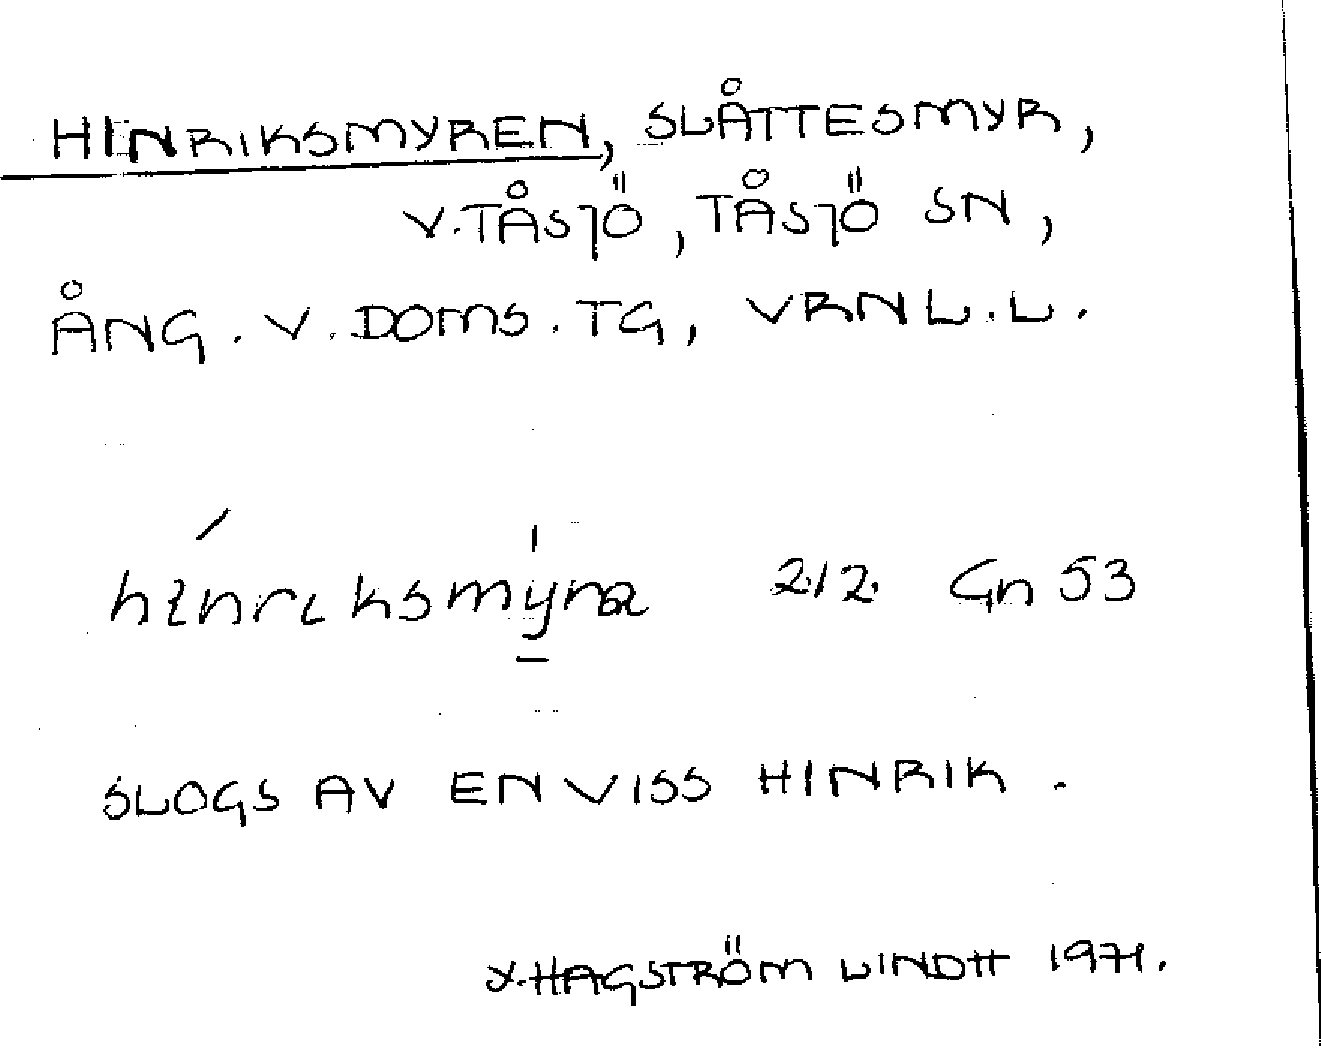 HINRIKSMYREN, SLÅTTESMYR,
V. TÅSJÖ, TÅSJÖ SN,
ÅNG. V. DOMS. TG, VRNL.L.
hinriksmýra 2.12. Gn 53
SLOGS AV EN VISS HINRIK.
Y. HAGSTRÖM LINDH 1971.